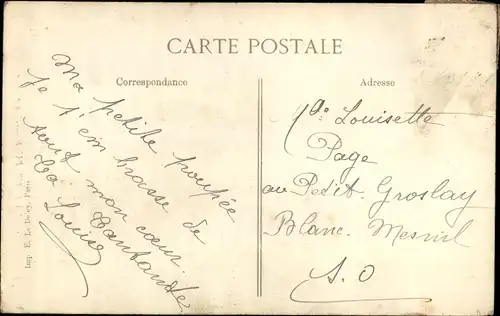 CARTE POSTALE
Correspondance
Ma petite poupée
Je t'embrasse de
tout mon cœur.
Ta Tantante
Louise
Adresse
Louisette
Page
au Petit. Groslay
Blanc. Mesnil
S. O
Imp. E. Le Deley, Paris